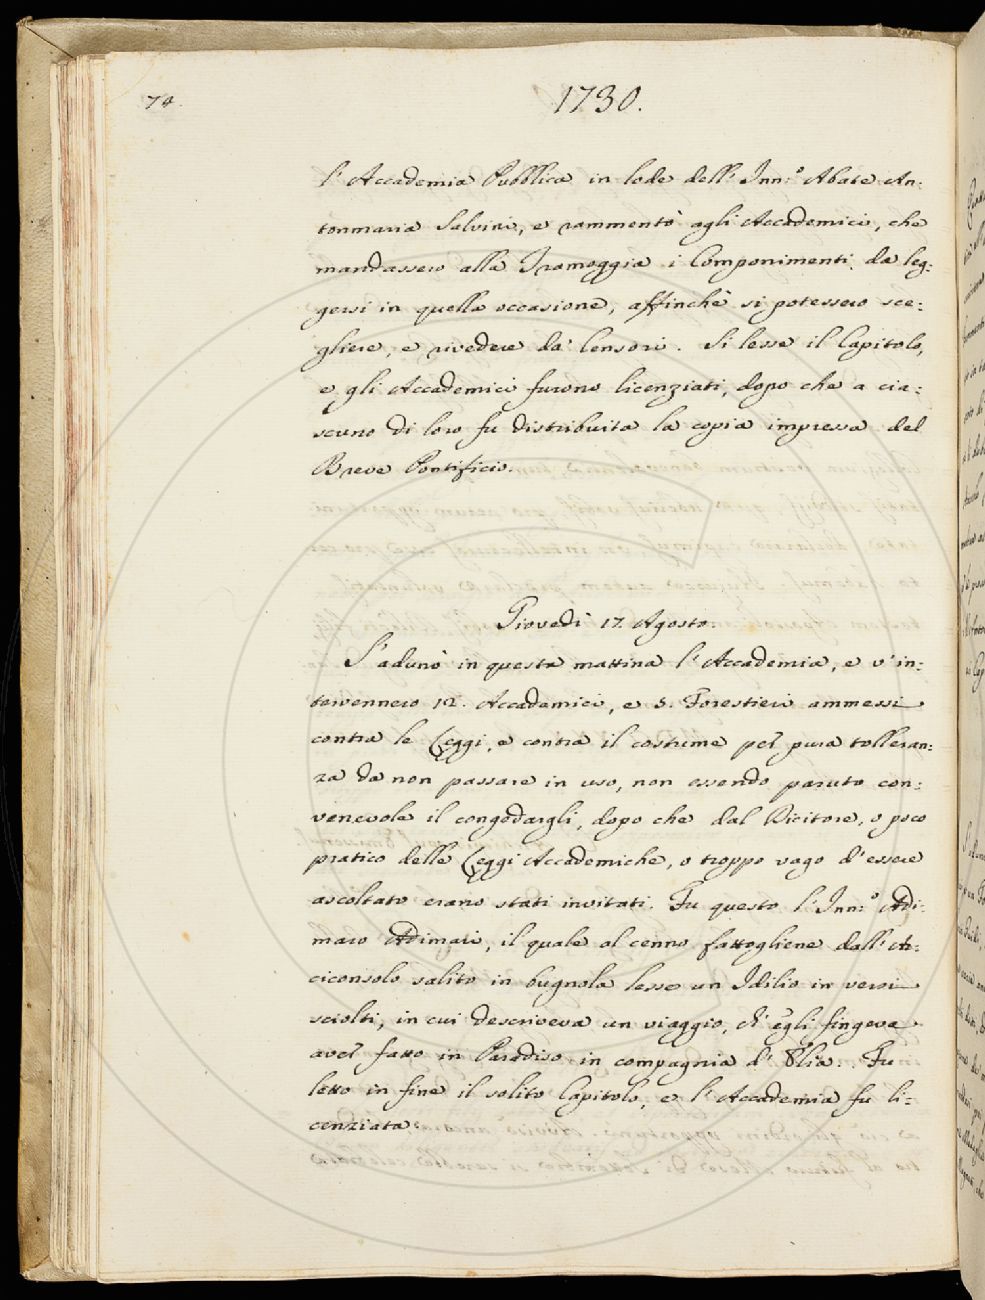 74.
1730.
l'Accademia Pubblica in lode dell'Inn:º Abate An:
tonmaria Salvini, e rammentò agli Accademici, che
mandassero alla Tramoggia i Componimenti da leg:
gersi in quella occasione, affinchè si potessero sce:
gliere, e rivedere da' Censori. Si lesse il Capitolo,
e gli Accademici furono licenziati, dopo che a cia:
scuno di loro fù distribuita la copia impressa del
Breve Pontificio.
Giovedì 17. Agosto.
S'adunò in questa mattina l'Accademia, e v'in:
tervennero 12. Accademici, e 5. Forestieri ammessi
contra le Leggi, e contra il costume per pura tolleran:
za da non passare in uso, non essendo paruto con:
venevole il congedargli, dopo che dal Dicitore, o poco
pratico delle Leggi Accademiche, o troppo vago d'essere
ascoltato erano stati invitati. Fu questo l'Inn:º Adi:
maro Adimari, il quale al cenno fattogliene dall'Ar:
ciconsolo salito in bugnola lesse un Idilio in versi
sciolti, in cui descriveva un viaggio, ch'egli fingeva
aver fatto in Paradiso in compagnia d'Elia. Fu
letto in fine il solito Capitolo, e l'Accademia fu li:
cenziata.